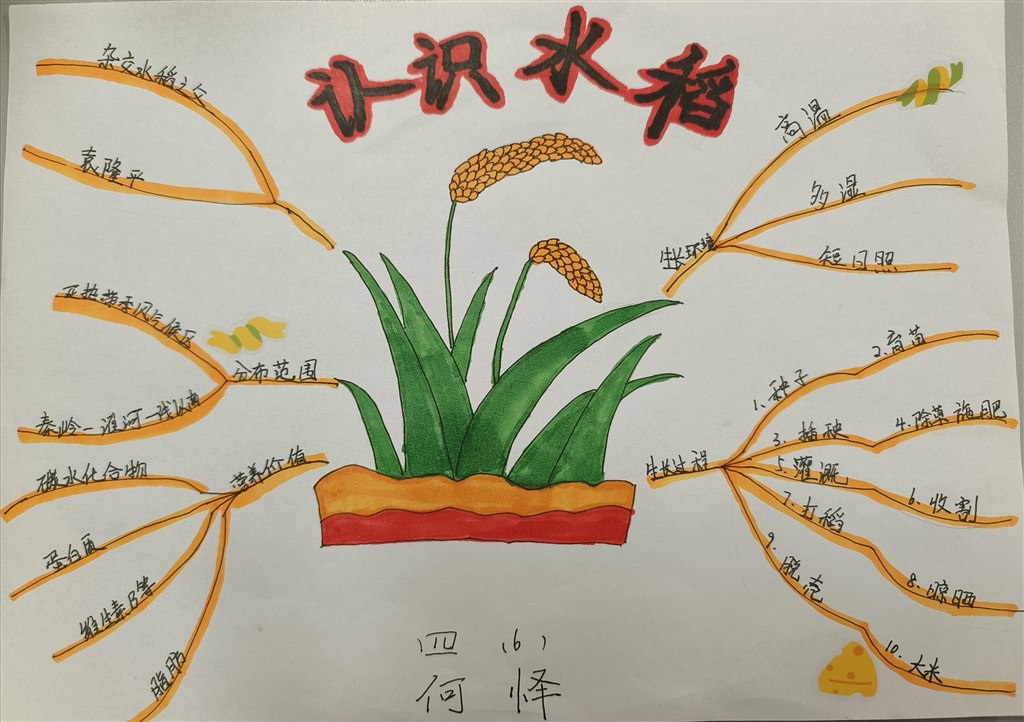 认识水稻
杂交水稻之父
袁隆平
亚热带季风气候区
分布范围
秦岭-淮河一线以南
营养价值
碳水化合物
蛋白质
维生素B等
脂肪
生长环境
高温
多湿
短日照
生长过程
1、种子
2.育苗
3、插秧
4.除草施肥
5、灌溉
6、收割
7、打稻
8、晾晒
9、脱壳
10、大米
四(6)
何怿